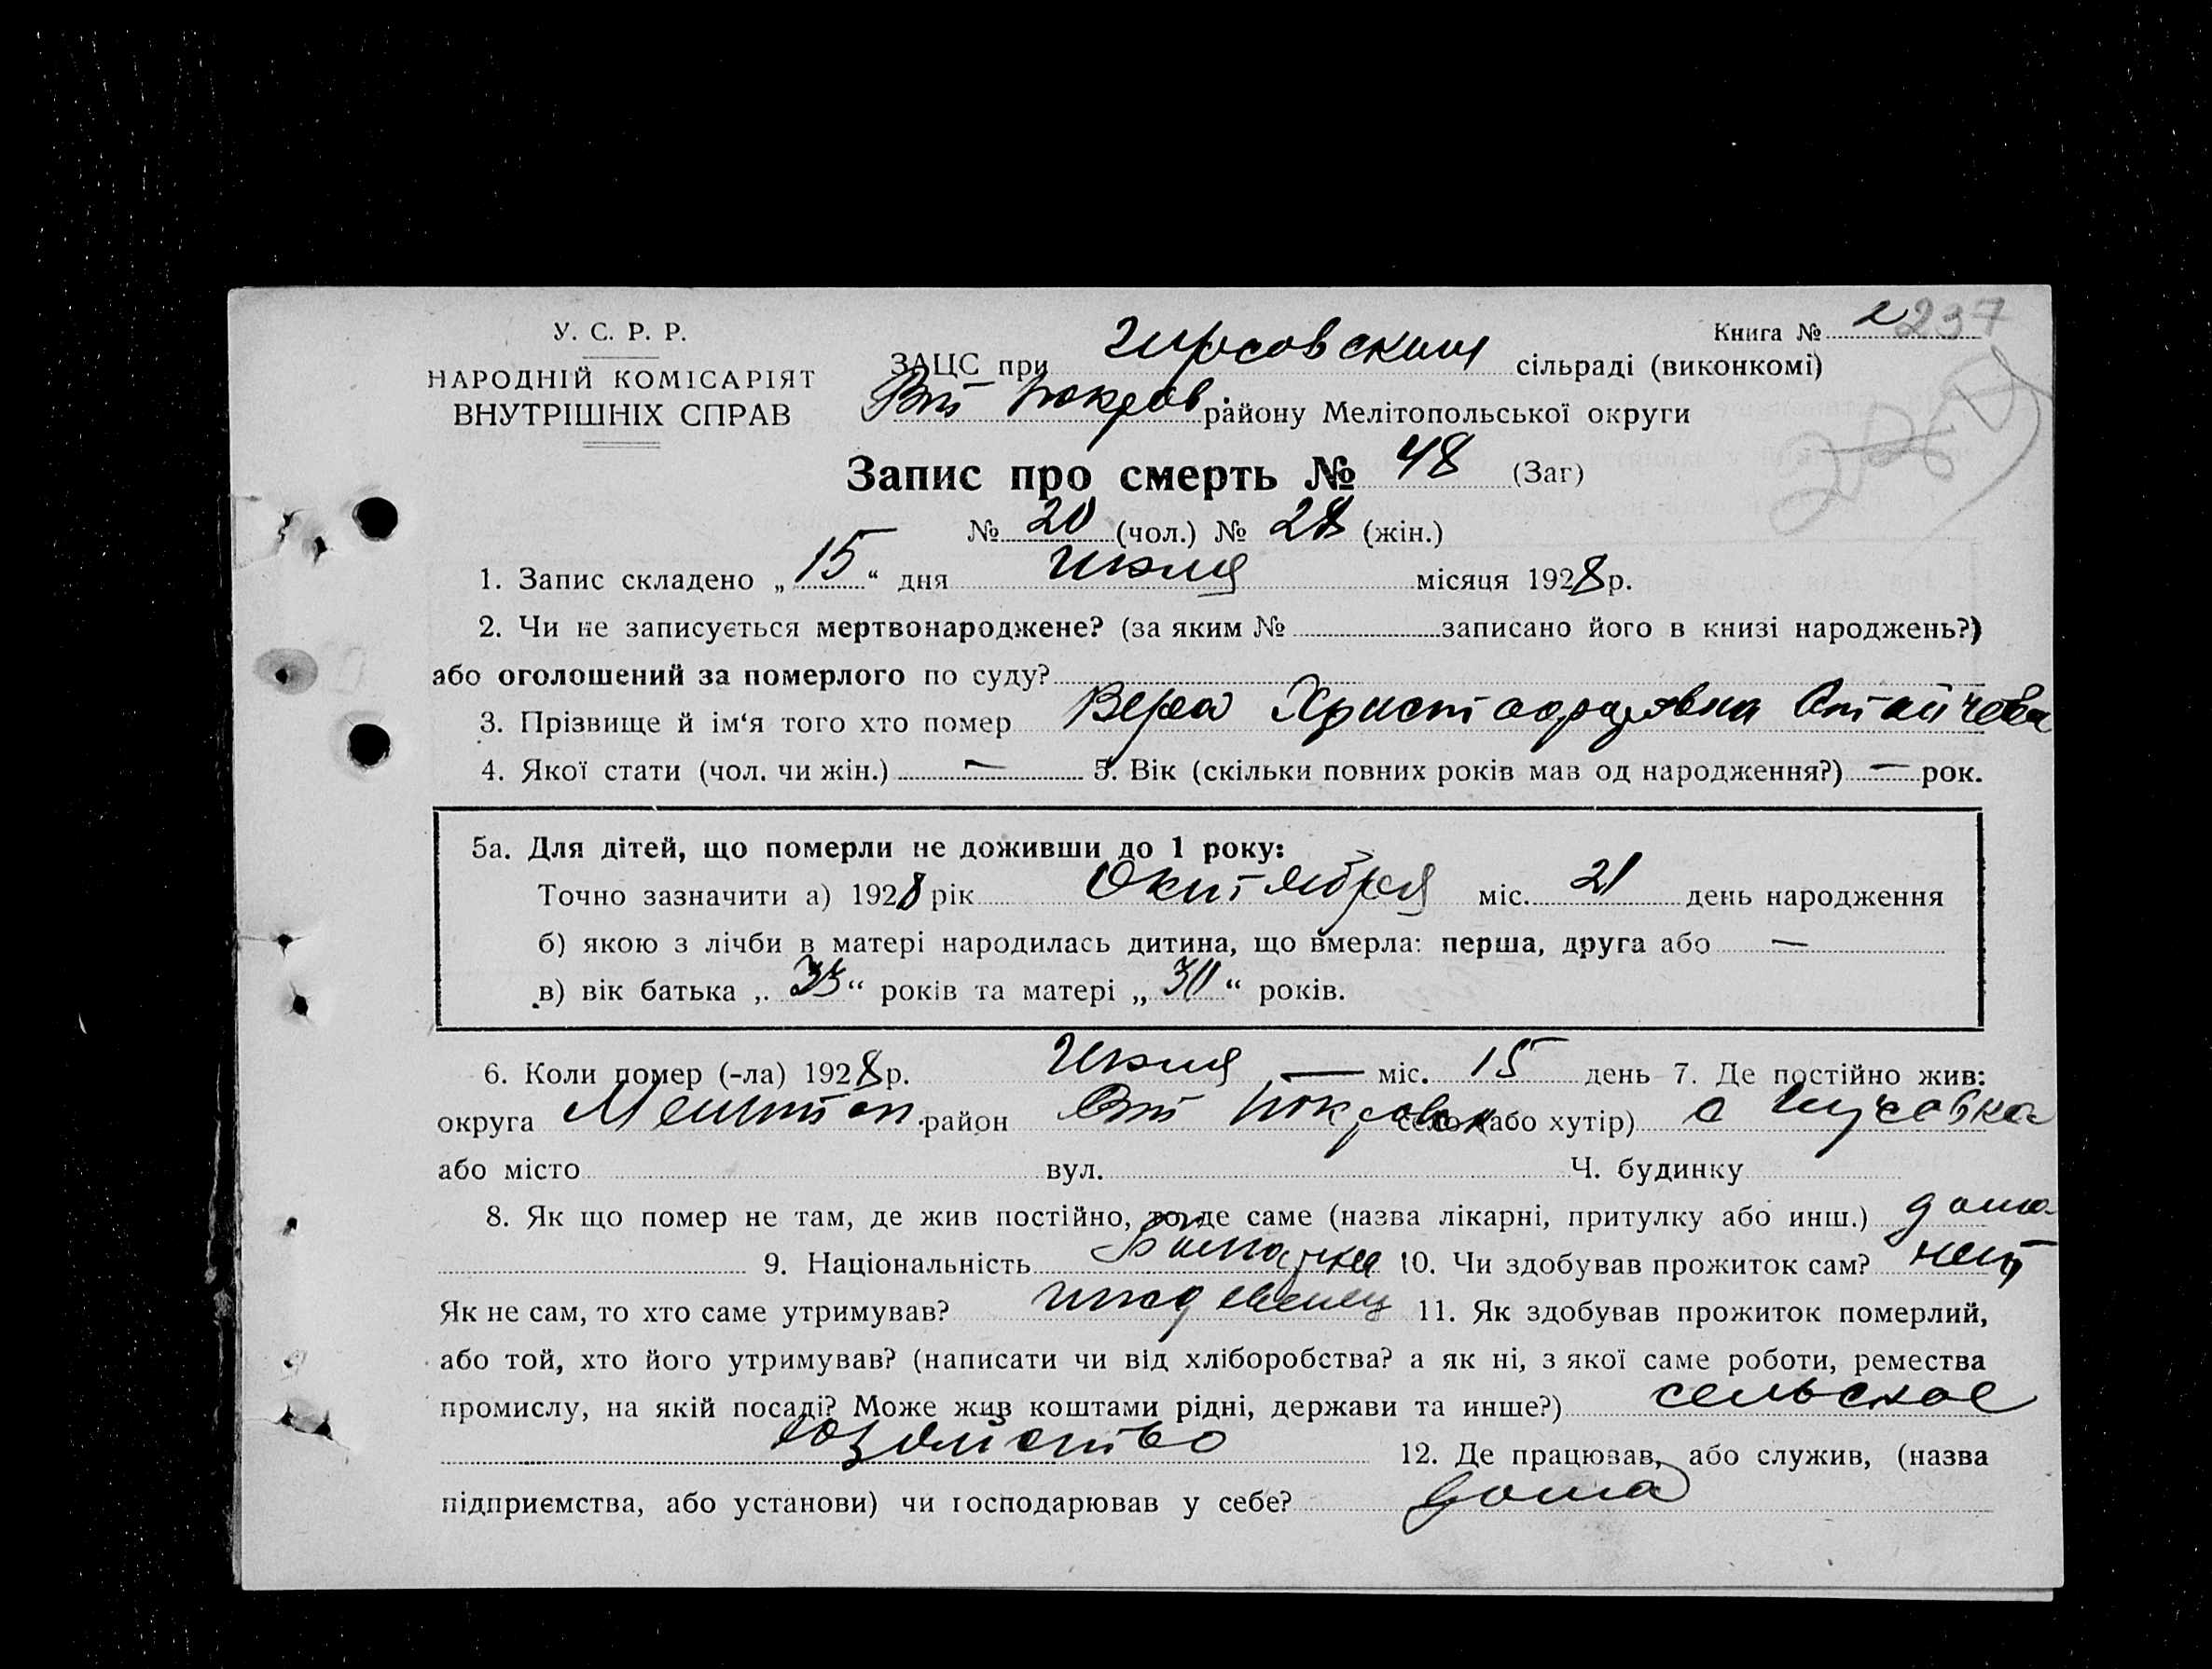 У. С. Р. Р.
НАРОДНІЙ КОМІСАРІЯТ
ВНУТРІШНІХ СПРАВ
Книга № 2 237
ЗАЦС при Гирсовским сільраді (виконкомі)
Вт Покров. району Мелітопольської округи
Запис про смерть № 48 (Заг)
№ 20 (чол.) № 28 (жін.)
1. Запис складено „15“ дня Июля місяця 1928 р.
2. Чи не записується мертвонароджене? (за яким № записано його в книзі народжень?)
або оголошений за померлого по суду?
3. Прізвище й ім‘я того хто помер Вера
4. Якої стати (чол. чи жін.) — 5. Вік (скільки повних років мав од народження?) — рок.
5а. Для дітей, що померли не доживши до 1 року:
Точно зазначити а) 1928 рік міс. 21 день народження
б) якою з лічби в матері народилась дитина, що вмерла: перша, друга або —
в) вік батька „33“ років та матері „30“ років.
6. Коли помер (-ла) 1928 р. Июля — міс. 15 день 7. Де постійно жив:
округа Мелитоп. район Вт Покровск село (або хутір) с Гирсовка
або місто вул. Ч. будинку
8. Як що помер не там, де жив постійно, то де саме (назва лікарні, притулку або инш.) дома
9. Національність Болгарка 10. Чи здобував прожиток сам? нет
Як не сам, то хто саме утримував? младенец 11. Як здобував прожиток померлий,
або той, хто його утримував? (написати чи від хліборобства? а як ні, з якої саме роботи, ремества
промислу, на якій посаді? Може жив коштами рідні, держави та инше?) сельское
хозяйство 12. Де працював, або служив, (назва
підприємства, або установи) чи господарював у себе? дома